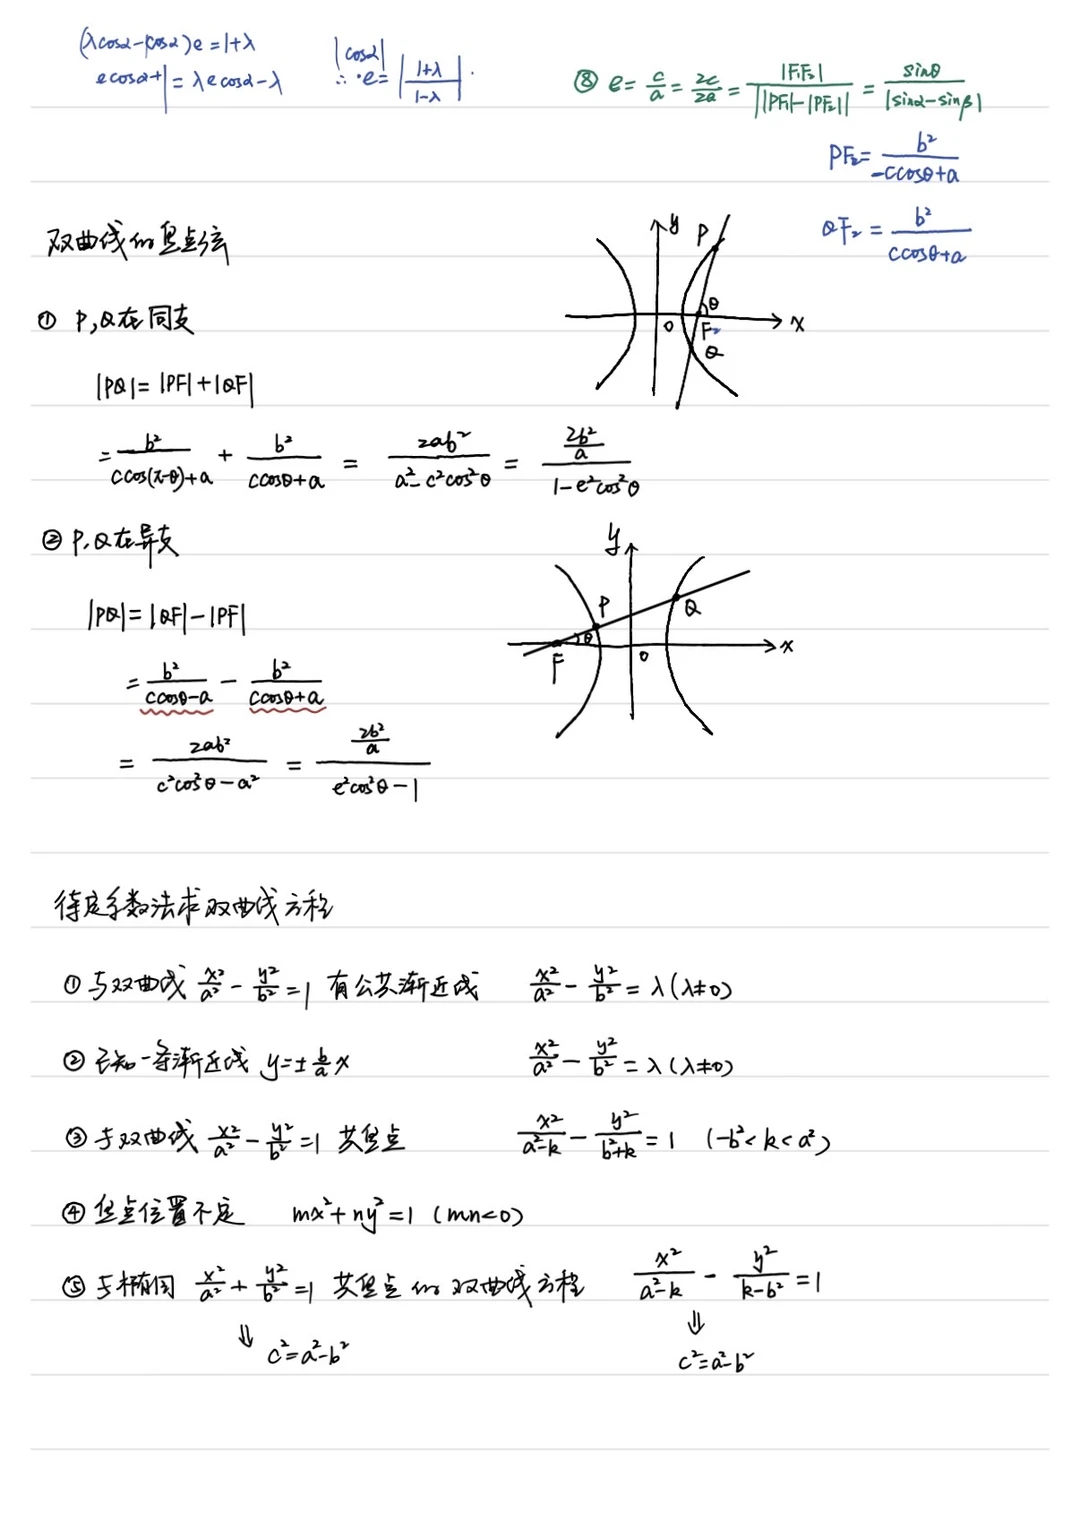 (λcosα-cosα)e=1+λ
ecosα+1=λecosα-λ
|cosα|
∴·e=|(1+λ)/(1-λ)|.
⑧ e=c/a=2c/2a=|F₁F₂|/||PF₁|-|PF₂||=sinθ/|sinα-sinβ|
PF₂=b²/(-ccosθ+a)
QF₂=b²/(ccosθ+a)
双曲线的焦点弦
y P
θ
O F₂ x
Q
① P,Q在同支
|PQ|=|PF|+|QF|
=b²/(ccos(π-θ)+a)+b²/(ccosθ+a)=2ab²/(a²-c²cos²θ)=(2b²/a)/(1-e²cos²θ)
② P,Q在异支
y
P Q
θ
F O x
|PQ|=|QF|-|PF|
=b²/(ccosθ-a)-b²/(ccosθ+a)
=2ab²/(c²cos²θ-a²)=(2b²/a)/(e²cos²θ-1)
待定系数法求双曲线方程
① 与双曲线 x²/a²-y²/b²=1 有公共渐近线 x²/a²-y²/b²=λ(λ≠0)
② 已知一条渐近线 y=±b/a x x²/a²-y²/b²=λ(λ≠0)
③ 与双曲线 x²/a²-y²/b²=1 共焦点 x²/(a²-k)-y²/(b²+k)=1 (-b²<k<a²)
④ 焦点位置不定 mx²+ny²=1 (mn<0)
⑤ 与椭圆 x²/a²+y²/b²=1 共焦点的双曲线方程 x²/(a²-k)-y²/(k-b²)=1
⇓ c²=a²-b² ⇓ c²=a²-b²